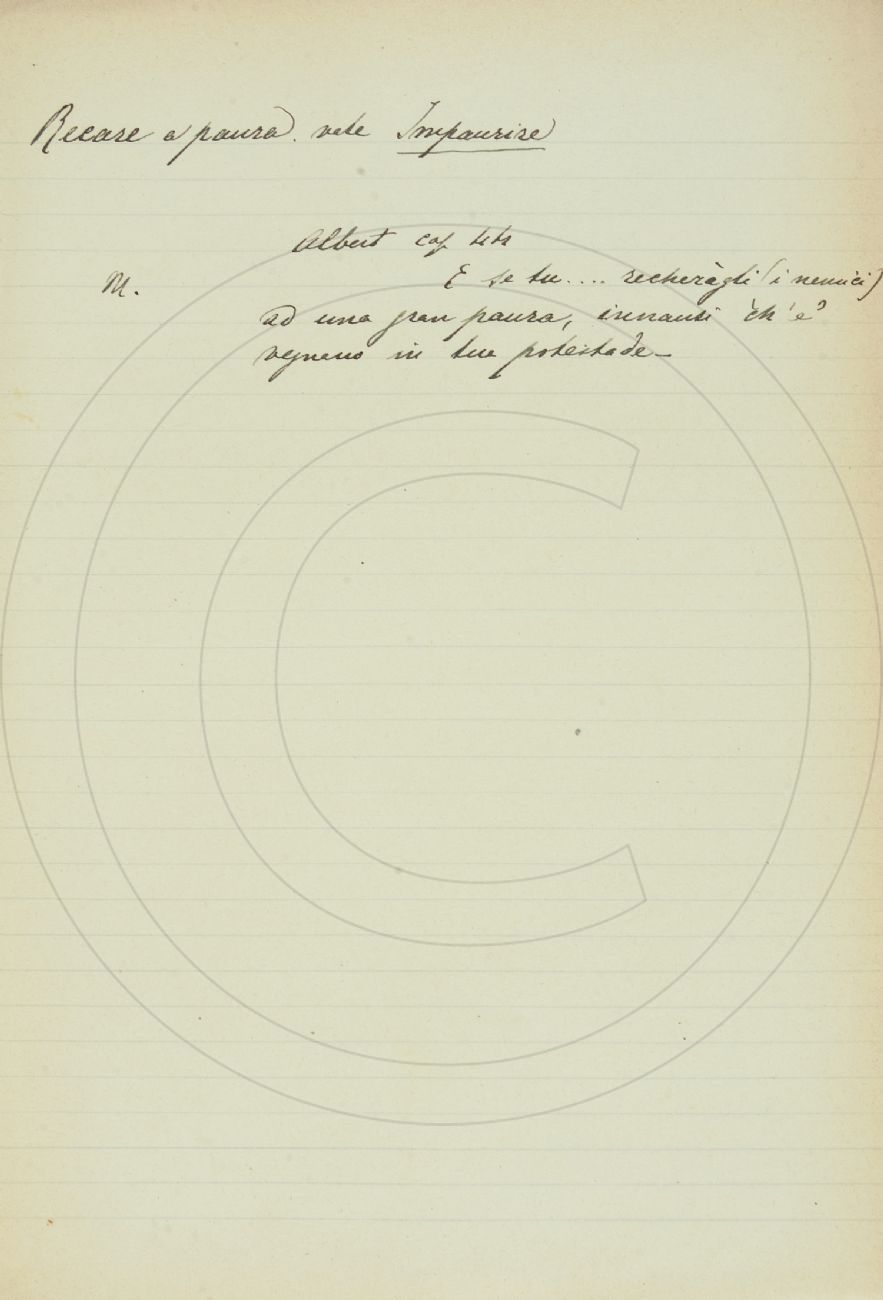 Recare a paura. vale Impaurire
Albert cap
E se tu.... recheràgli (i nemici)
M.
ad una gran paura, innanzi ch'e'
vegnano in tua potestade_